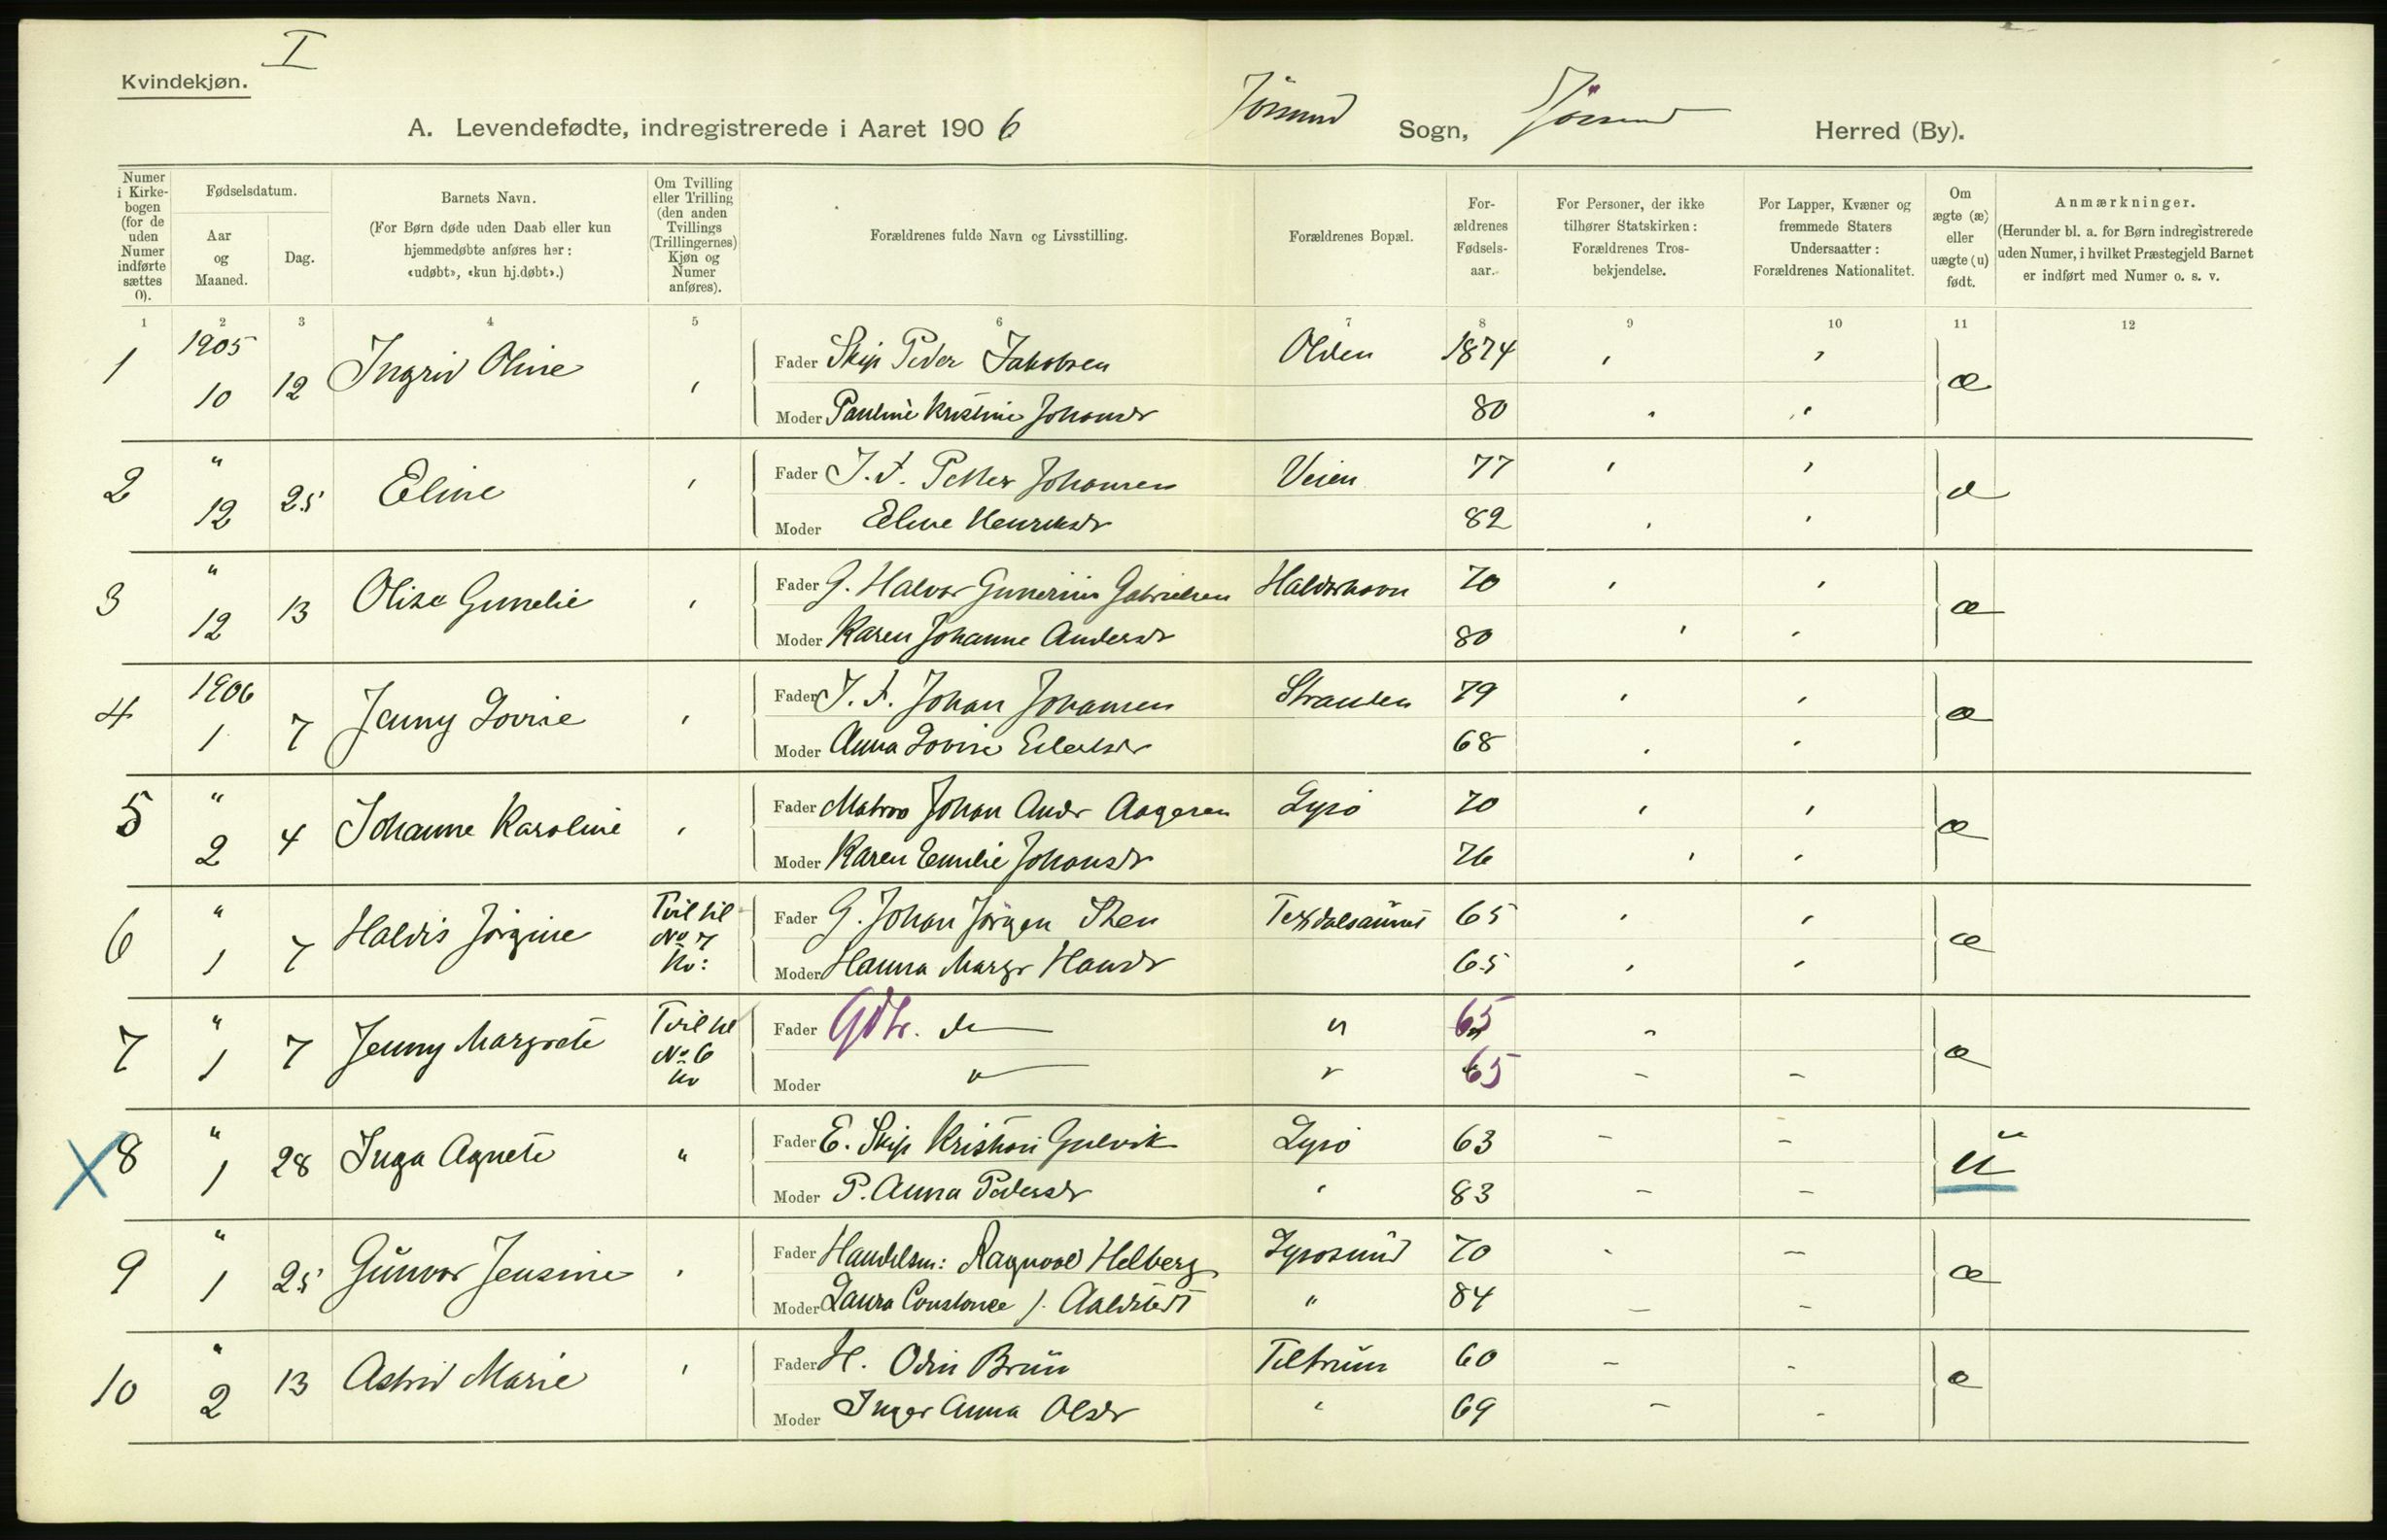 I
Kvindekjøn.
A. Levendefødte, indregistrerede i Aaret 1906
Jøssund Sogn, Jøssund Herred (By).
Numer i Kirkebogen (for de uden Numer indførte sættes 0).
Fødselsdatum.
Aar og Maaned.
Dag.
Barnets Navn.
(For Børn døde uden Daab eller kun hjemmedøbte anføres her: «udøbt», «kun hj.døbt».)
Om Tvilling eller Trilling (den anden Tvillings (Trillingernes) Kjøn og Numer anføres).
Forældrenes fulde Navn og Livsstilling.
Forældrenes Bopæl.
Forældrenes Fødselsaar.
For Personer, der ikke tilhører Statskirken: Forældrenes Trosbekjendelse.
For Lapper, Kvæner og fremmede Staters Undersaatter: Forældrenes Nationalitet.
Om ægte (æ) eller uægte (u) født.
Anmærkninger.
(Herunder bl. a. for Børn indregistrerede uden Numer, i hvilket Præstegjeld Barnet er indført med Numer o. s. v.
1 2 3 4 5 6 7 8 9 10 11 12
1 1905 10 12 Ingrid Oline Fader Skip Peder Jakobsen Olden 1874 æ
Moder Pauline Kristine Johansdr 80
2 " 12 25 Eline Fader J. F. Petter Johansen Veien 77 æ
Moder Eline Henriksdr 82
3 " 12 13 Olise Gunelie Fader G. Halvor Gunerius Gabrielsen Haldorhavn 70 æ
Moder Karen Johanne Andersdr 80
4 1906 1 7 Jenny Lovise Fader J. F. Johan Johansen Stranden 79 æ
Moder Anna Lovise Eilertsdr 68
5 " 2 4 Johanne Karoline Fader Matros Johan Andr Aagesen Lysø 70 æ
Moder Karen Emilie Johansdr 76
6 " 1 7 Haldis Jørgine Tvil til No 7 Kv: Fader G. Johan Jørgen Sten 65 æ
Moder Hanna Margr Hansdr 65
7 " 1 7 Jenny Margrete Tvil til No 6 Kv Fader Gdbr. do " 65 æ
Moder " " 65
8 " 1 28 Inga Agnete " Fader E. Skip Kristian Gulvik Lysø 63 u
Moder P. Anna Pedersdr " 83
9 " 1 25 Gunvor Jensine Fader Handelsm: Ragnvald Helberg Lysøsund 70 æ
Moder Laura Constance f. " 84
10 " 2 13 Astrid Marie Fader H. Odin Brun Teltrum 60 æ
Moder Inger Anna Olsdr " 69